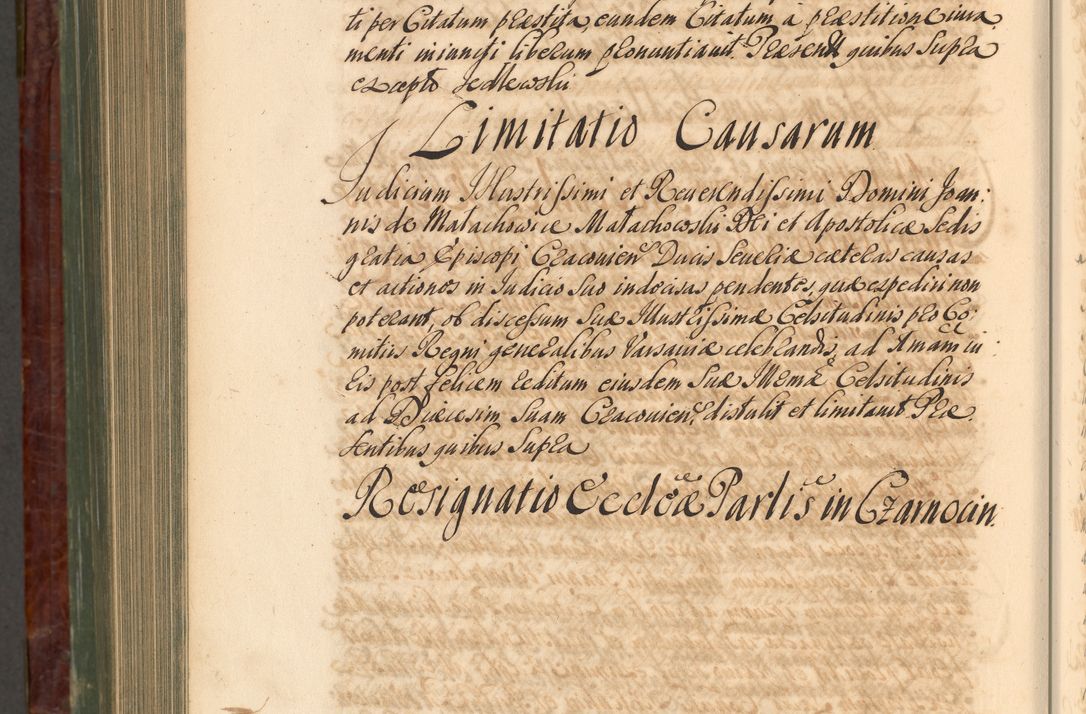 ti per Citatum præstita, eundem Citatum à præstitione iura
menti iniuncti liberum pronuntiauit. Præsentt quibus Supra
excepto Sedlewski
Limitatio Causarum
Judicium Illustrissimi et Reuerendissimi Domini Joan:
nis de Małachowice Małachowski Dei et Apostolicæ Sedis
gratia Episcopi Cracouien Ducis Seueriæ cæteras causas
et actiones in Judicio Suo indecisas pendentes, quæ expediri non
poterant, ob discessum Suæ Illustrissimæ Celsitudinis pro Co:
mitiis Regni generalibus Varsauiæ celebrandis, ad
post felicem reditum eiusdem Suæ Illmæ Celsitudinis
ad Diæcesim Suam Cracouien, distulit et limitauit Præ
sentibus quibus Supra
Resignatio Eccłæ Parlis in Czarnocin.